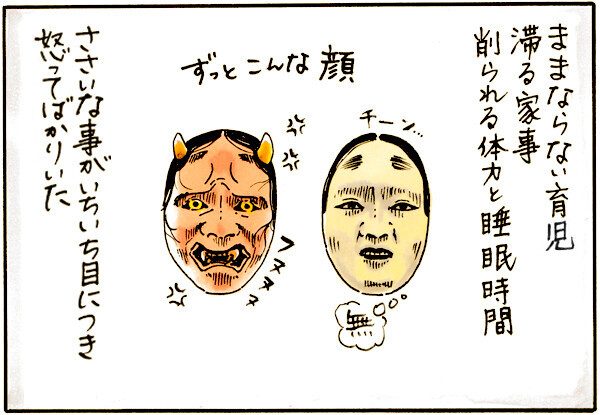 ままならない育児
滞る家事
削られる体力と睡眠時間
ずっとこんな顔
チーン…
無
ヌヌヌヌ
ささいな事がいちいち目につき
怒ってばかりいた